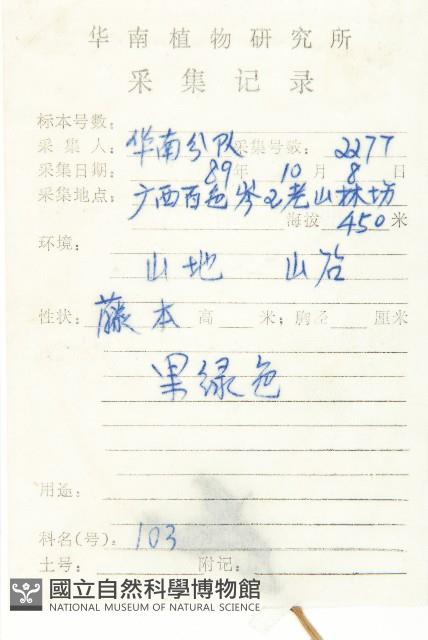 华南植物研究所
采集记录
标本号数:
采集人: 华南分队 采集号数: 2277
采集日期: 89年 10月 8日
采集地点: 广西百色岑王老山林场
海拔 450 米
环境:
山地 山谷
性状: 藤本 高 米; 胸径 厘米
果绿色
用途:
科名(号): 103
土号: 附记:
國立自然科學博物館
NATIONAL MUSEUM OF NATURAL SCIENCE